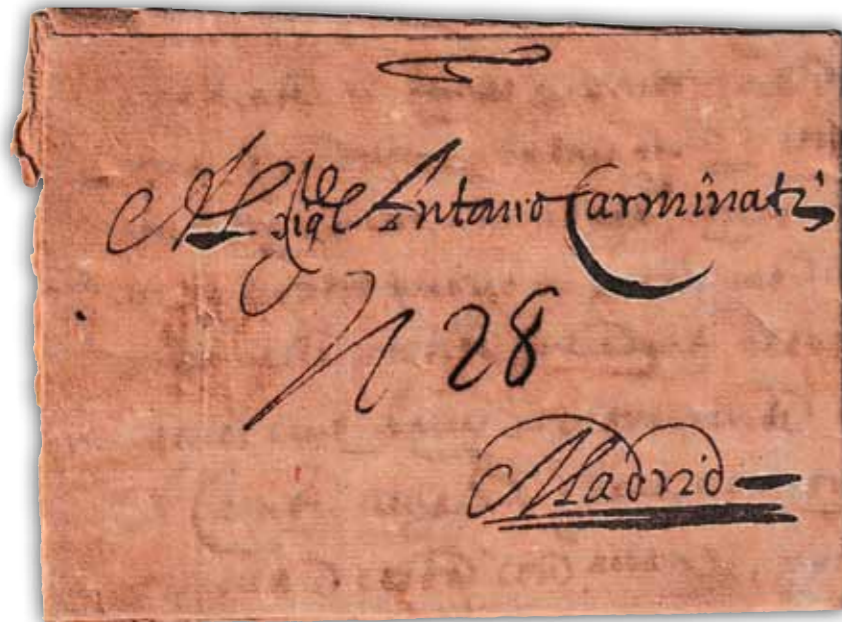 Al Antonio Carminati
N 28
Madrid